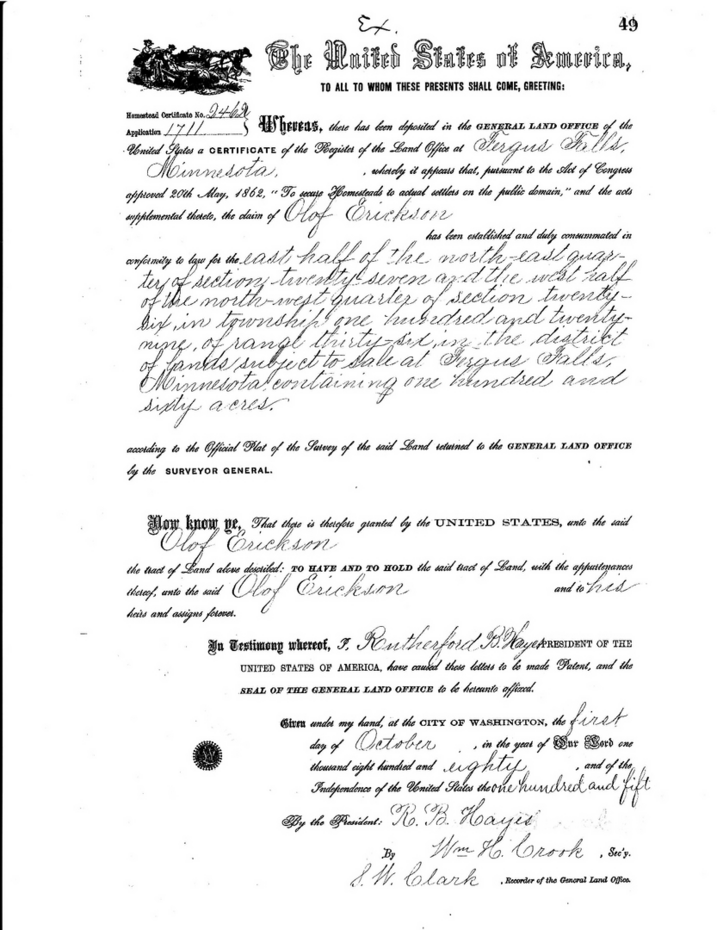 Ex.
49
The United States of America,
TO ALL TO WHOM THESE PRESENTS SHALL COME, GREETING:
Homestead Certificate No. 2462
Application 1711 } Whereas, there has been deposited in the GENERAL LAND OFFICE of the
United States a CERTIFICATE of the Register of the Land Office at Fergus Falls,
Minnesota, , whereby it appears that, pursuant to the Act of Congress
approved 20th May, 1862, "To secure Homesteads to actual settlers on the public domain," and the acts
supplemental thereto, the claim of Olof Erickson
has been established and duly consummated in
conformity to law for the east half of the north-east quar-
ter of section twenty-seven and the west half
of the north-west quarter of section twenty-
six, in township one hundred and twenty-
nine, of range thirty-six, in the district
of lands subject to sale at Fergus Falls,
Minnesota containing one hundred and
sixty acres.
according to the Official Plat of the Survey of the said Land returned to the GENERAL LAND OFFICE
by the SURVEYOR GENERAL.
Now know ye, That there is therefore granted by the UNITED STATES, unto the said
Olof Erickson
the tract of Land above described: TO HAVE AND TO HOLD the said tract of Land, with the appurtenances
thereof, unto the said Olof Erickson and to his
heirs and assigns forever.
In Testimony whereof, I, Rutherford B. Hayes PRESIDENT OF THE
UNITED STATES OF AMERICA, have caused these letters to be made Patent, and the
SEAL OF THE GENERAL LAND OFFICE to be hereunto affixed.
Given under my hand, at the CITY OF WASHINGTON, the first
day of October , in the year of Our Lord one
thousand eight hundred and eighty , and of the
Independence of the United States the one hundred and fift
By the President: R. B. Hayes
By Wm H. Crook , Sec'y.
S. W. Clark , Recorder of the General Land Office.